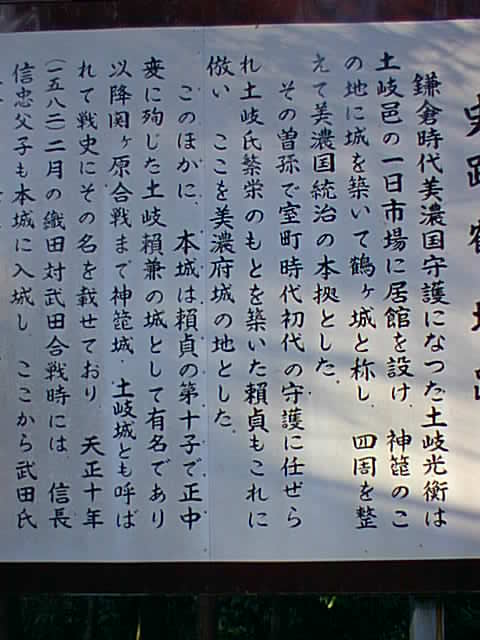 史跡 鶴ヶ城
鎌倉時代美濃国守護になつた土岐光衡は
土岐邑の一日市場に居館を設け、神箆のこ
の地に城を築いて鶴ヶ城と称し、四囲を整
えて美濃国統治の本拠とした。
その曽孫で室町時代初代の守護に任ぜら
れ土岐氏繁栄のもとを築いた頼貞もこれに
倣い、ここを美濃府城の地とした。
このほかに、本城は頼貞の第十子で正中
変に殉じた土岐頼兼の城として有名であり
以降関ヶ原合戦まで神箆城、土岐城とも呼ば
れて戦史にその名を載せており、天正十年
(一五八二)二月の織田対武田合戦時には、信長
信忠父子も本城に入城し、ここから武田氏